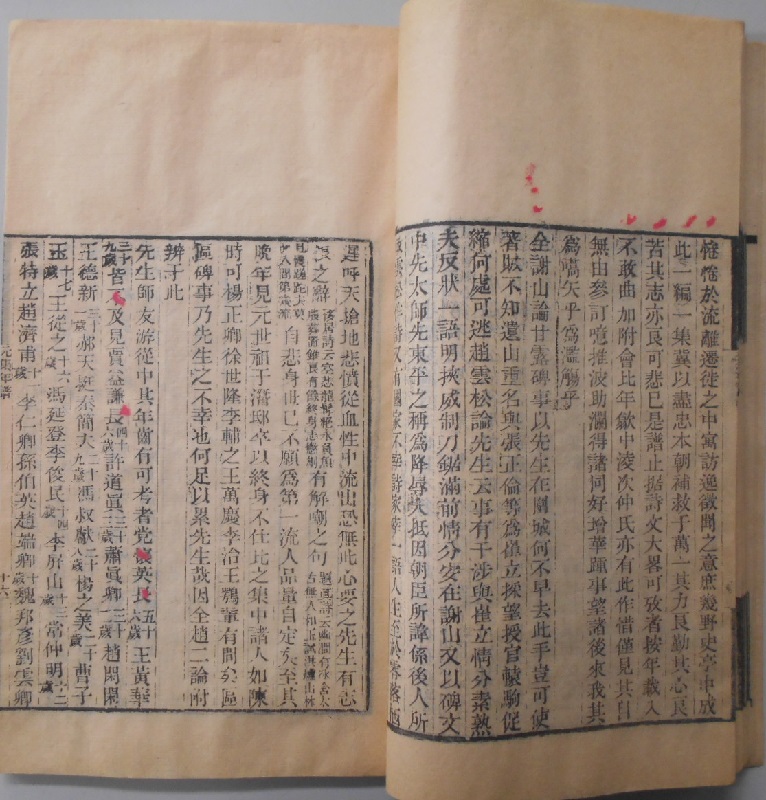 惓惓於流離遷徙之中寓訪逸徵聞之意庶幾野史亭中成
此一編一集冀以盡忠本朝補救于萬一其力良勤其心良
苦其志亦良可悲已是譜止据詩文大畧可攷者按年載入
不敢曲加附會比年歙中淩次仲氏亦有此作惜僅見其目
無由參訂噫推波助瀾得諸同好增華踵事望諸後來我其
爲嚆矢乎爲濫觴乎
全謝山論甘露碑事以先生在圍城何不早去此手豈可使
著賍不知遺山重名與張正倫等爲崔立採望授官轅駒促
縮何處可逃趙雲松論先生云事有干涉與崔立情分素熱
夫反狀一語明挾威制刀鋸滿前情分安在謝山又以碑文
中先太師先東平之稱爲降辱失抵因朝臣所諱係後人所
遲呼天搶地悲憤從血性中流出恐無此心要之先生有志
有解嘲之句
自悲身世已不願爲第一流人品量自定矣至其
晩年見元世祖于潛邸卒以終身不仕比之集中諸人如陳
時可楊正卿徐世隆李輔之王萬慶李治王鶚輩有間矣區
區碑事乃先生之不幸也何足以累先生哉因全趙二論附
辨于此
先生師友游從中其年齒有可考者党懷英長五十六歲王黃華
三十九歲皆不及見賈益謙長四十歲許道眞三十歲蕭眞卿三十一歲趙閑閑
三十一歲王德新郝天挺秦簡夫二十九歲馮叔獻二十八歲楊之美二十歲曹子
玉十七歲王從之十六歲馮延登李俊民十四歲李屏山十三歲常仲明十二歲
張特立趙濟甫十一歲李仁卿孫伯英趙端卿十歲魏邦彥劉雲卿
元遺山年譜
十六